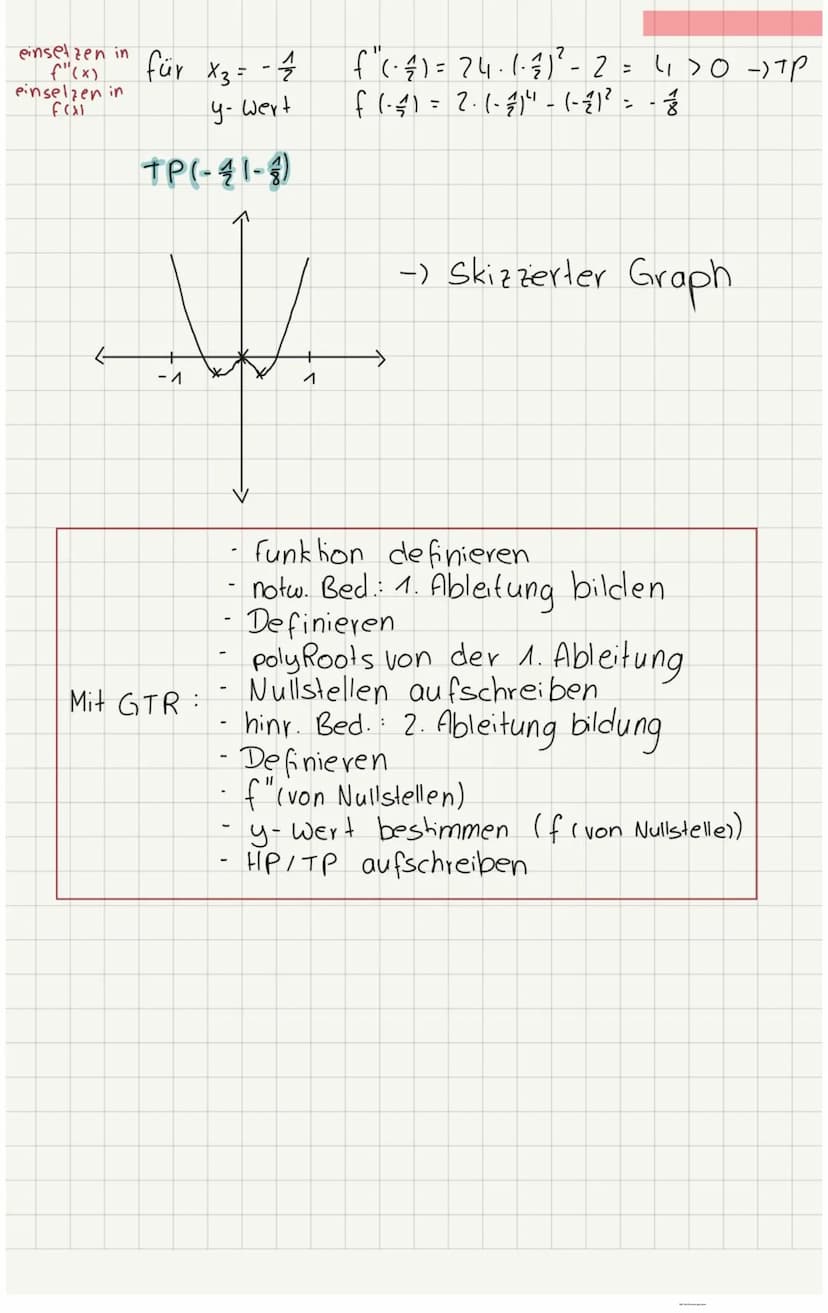 einsetzen in
f"(x)
für x₃ = -1/2 f"(-1/2) = 24 · (-1/2)² - 2 = 4 > 0 → TP
einsetzen in
f(x)
y-Wert f(-1/2) = 2 · (-1/2)⁴ - (-1/2)² = -1/8
TP(-1/2 | -1/8)
→ Skizzierter Graph
-1 1
- Funktion definieren
- notw. Bed.: 1. Ableitung bilden
- Definieren
- polyRoots von der 1. Ableitung
Mit GTR: - Nullstellen aufschreiben
- hinr. Bed.: 2. Ableitung bildung
- Definieren
- f"(von Nullstellen)
- y-Wert bestimmen (f(von Nullstellen)
- HP/TP aufschreiben